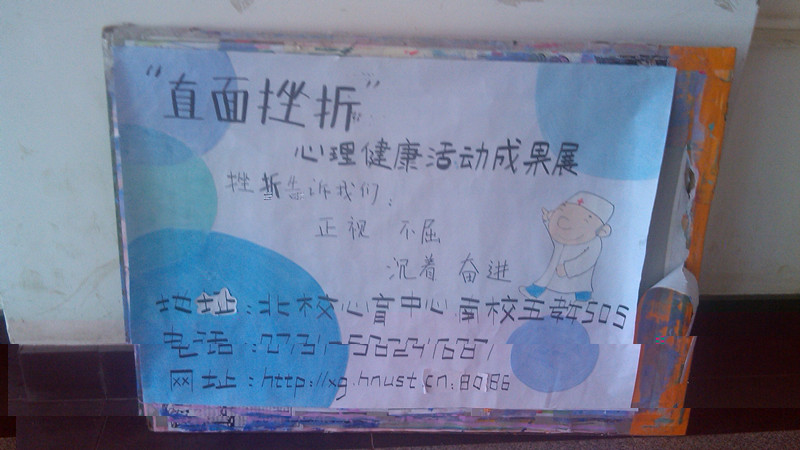 “直面挫折”
心理健康活动成果展
挫折告诉我们：
正视 不屈
沉着 奋进
地址：北校心育中心 南校五教505
电话：0731-58291
网址：http://xg.hnust.cn:8086